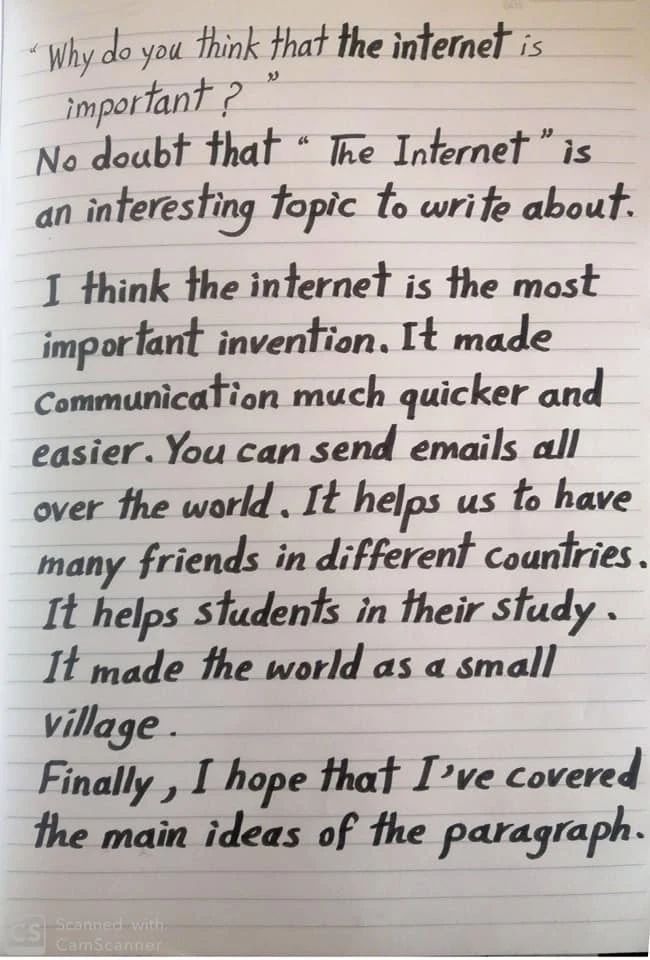 “Why do you think that the internet is
important? ”
No doubt that “ The Internet ” is
an interesting topic to write about.
I think the internet is the most
important invention. It made
Communication much quicker and
easier. You can send emails all
over the world. It helps us to have
many friends in different countries.
It helps students in their study.
It made the world as a small
village.
Finally, I hope that I've covered
the main ideas of the paragraph.
CS Scanned with
CamScanner